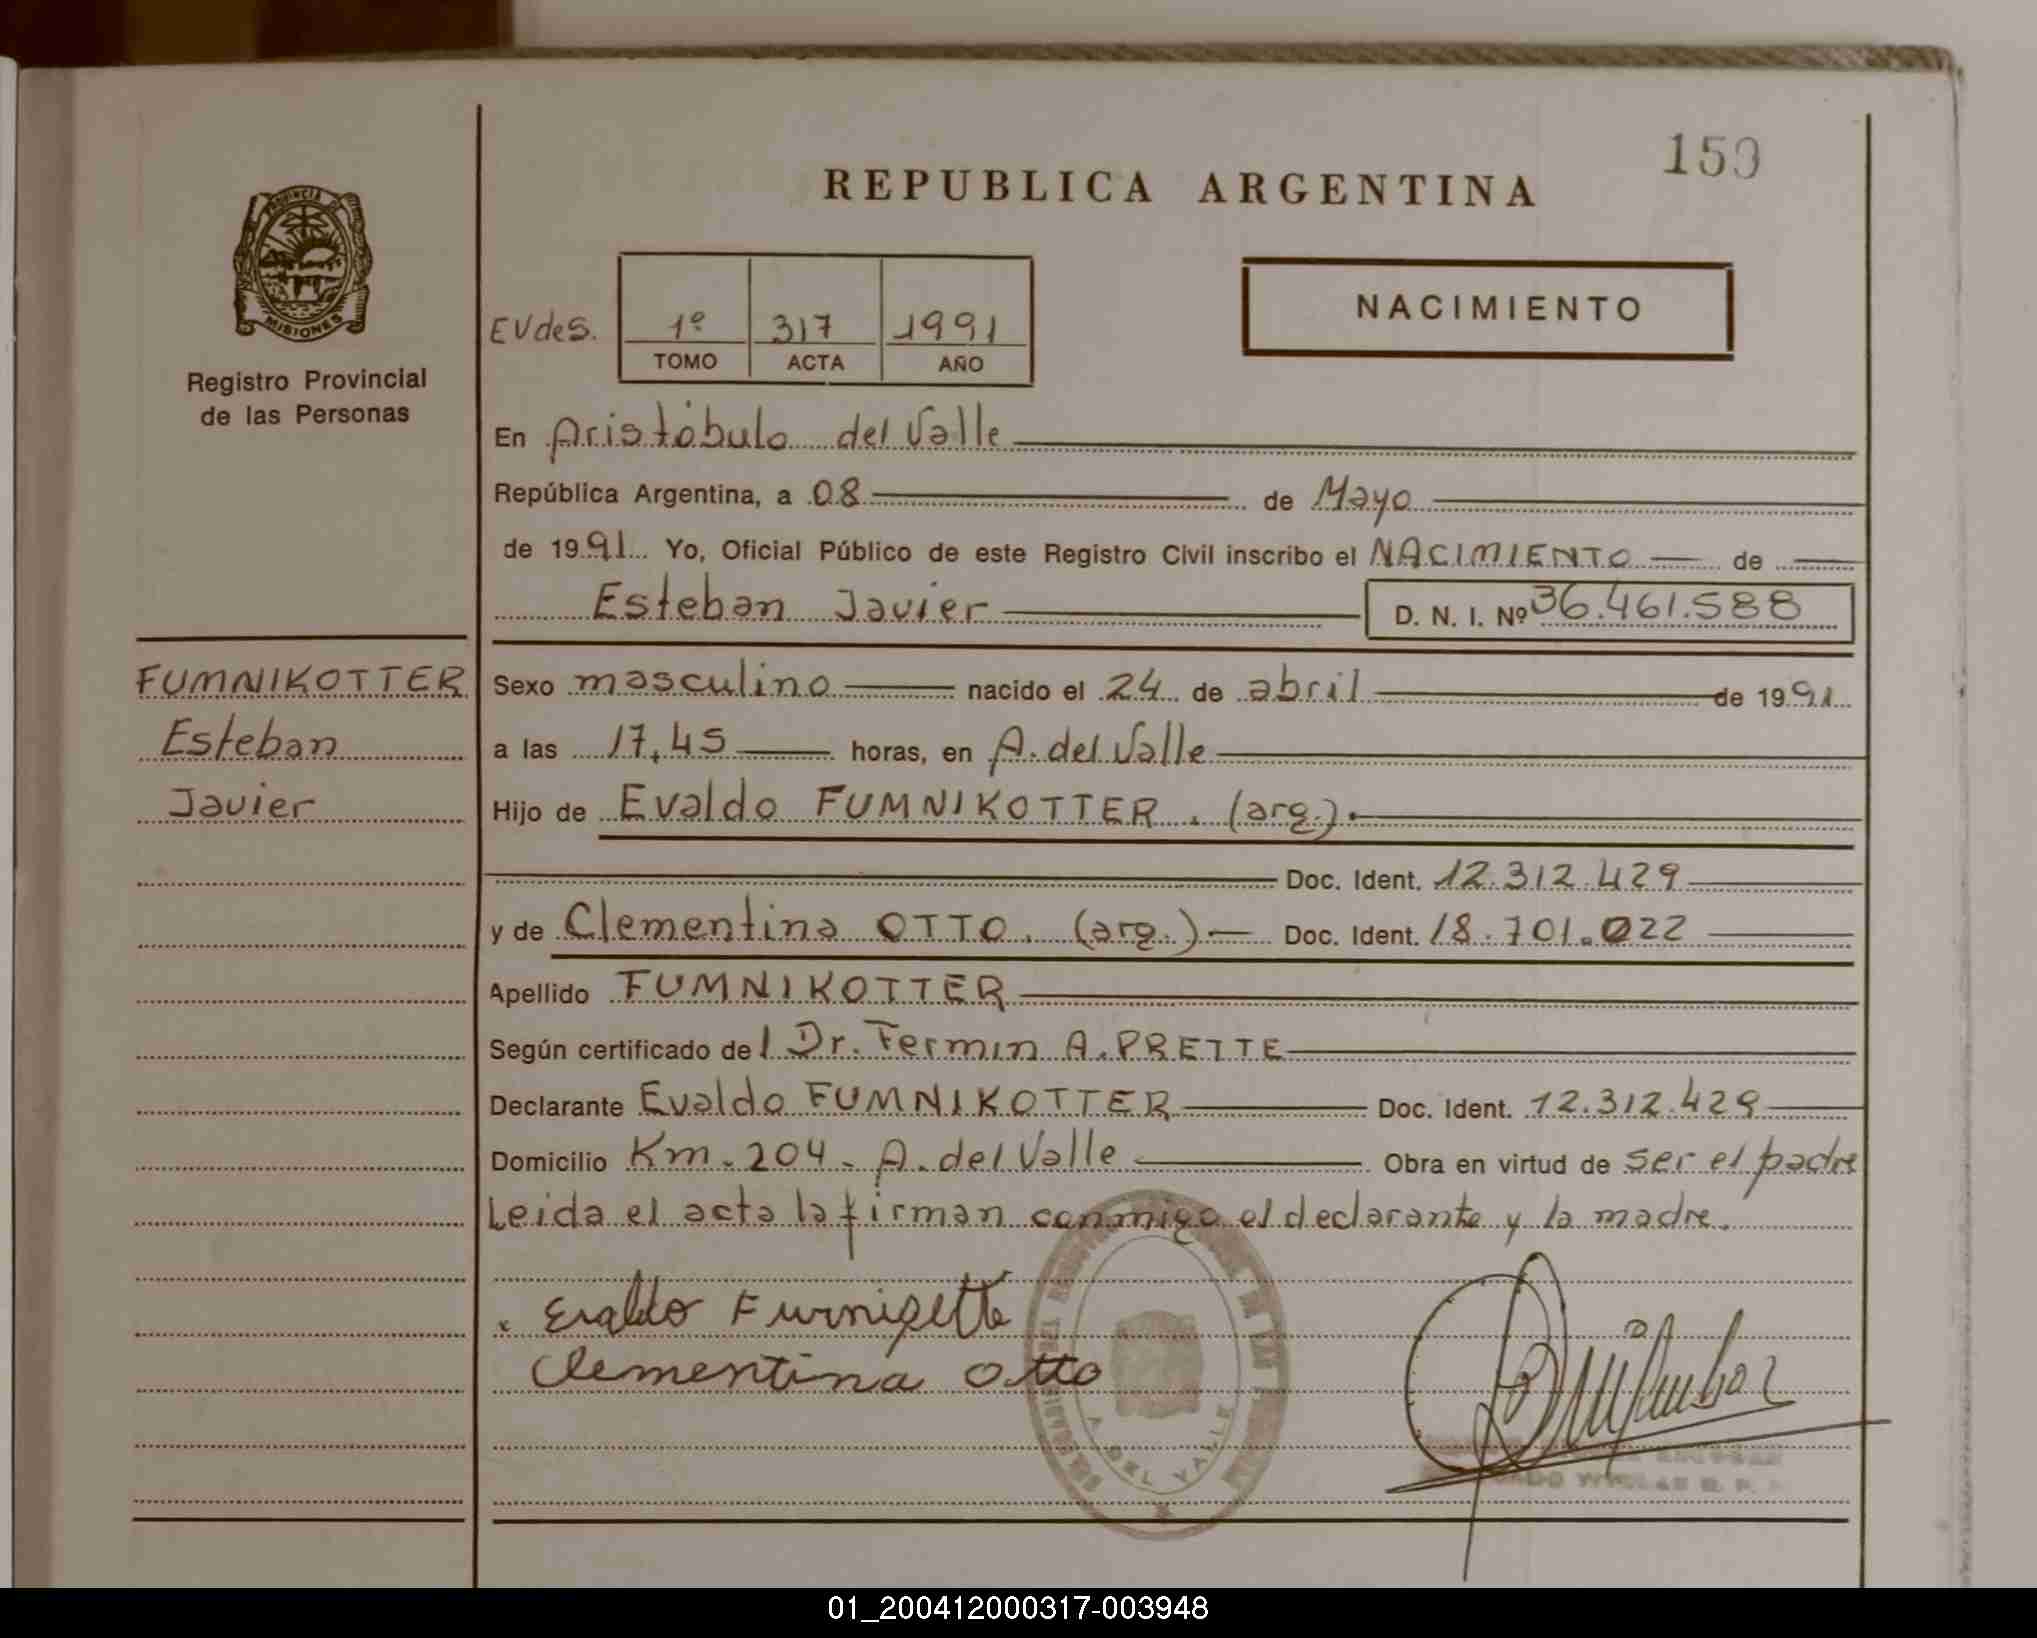 159
REPUBLICA ARGENTINA
PROVINCIA DE
MISIONES
Registro Provincial
de las Personas
EVdes.
1º 317 1991
TOMO ACTA AÑO
NACIMIENTO
En Aristóbulo del Valle
República Argentina, a 08 de Mayo
de 1991 Yo, Oficial Público de este Registro Civil inscribo el NACIMIENTO de
Esteban Javier D. N. I. Nº 36.461.588
FUMNIKOTTER
Esteban
Javier
Sexo masculino nacido el 24 de abril de 1991
a las 17,45 horas, en A. del Valle
Hijo de Evaldo FUMNIKOTTER. (arg.).
Doc. Ident. 12.312.429
y de Clementina OTTO. (arg.) Doc. Ident. 18.701.022
Apellido FUMNIKOTTER
Según certificado del Dr. Fermin A. PRETTE
Declarante Evaldo FUMNIKOTTER Doc. Ident. 12.312.429
Domicilio Km. 204. A. del Valle Obra en virtud de ser el padre
Leida el acta la firman conmigo el declarante y la madre.
Evaldo
Clementina Otto
A. DEL VALLE
01_200412000317-003948